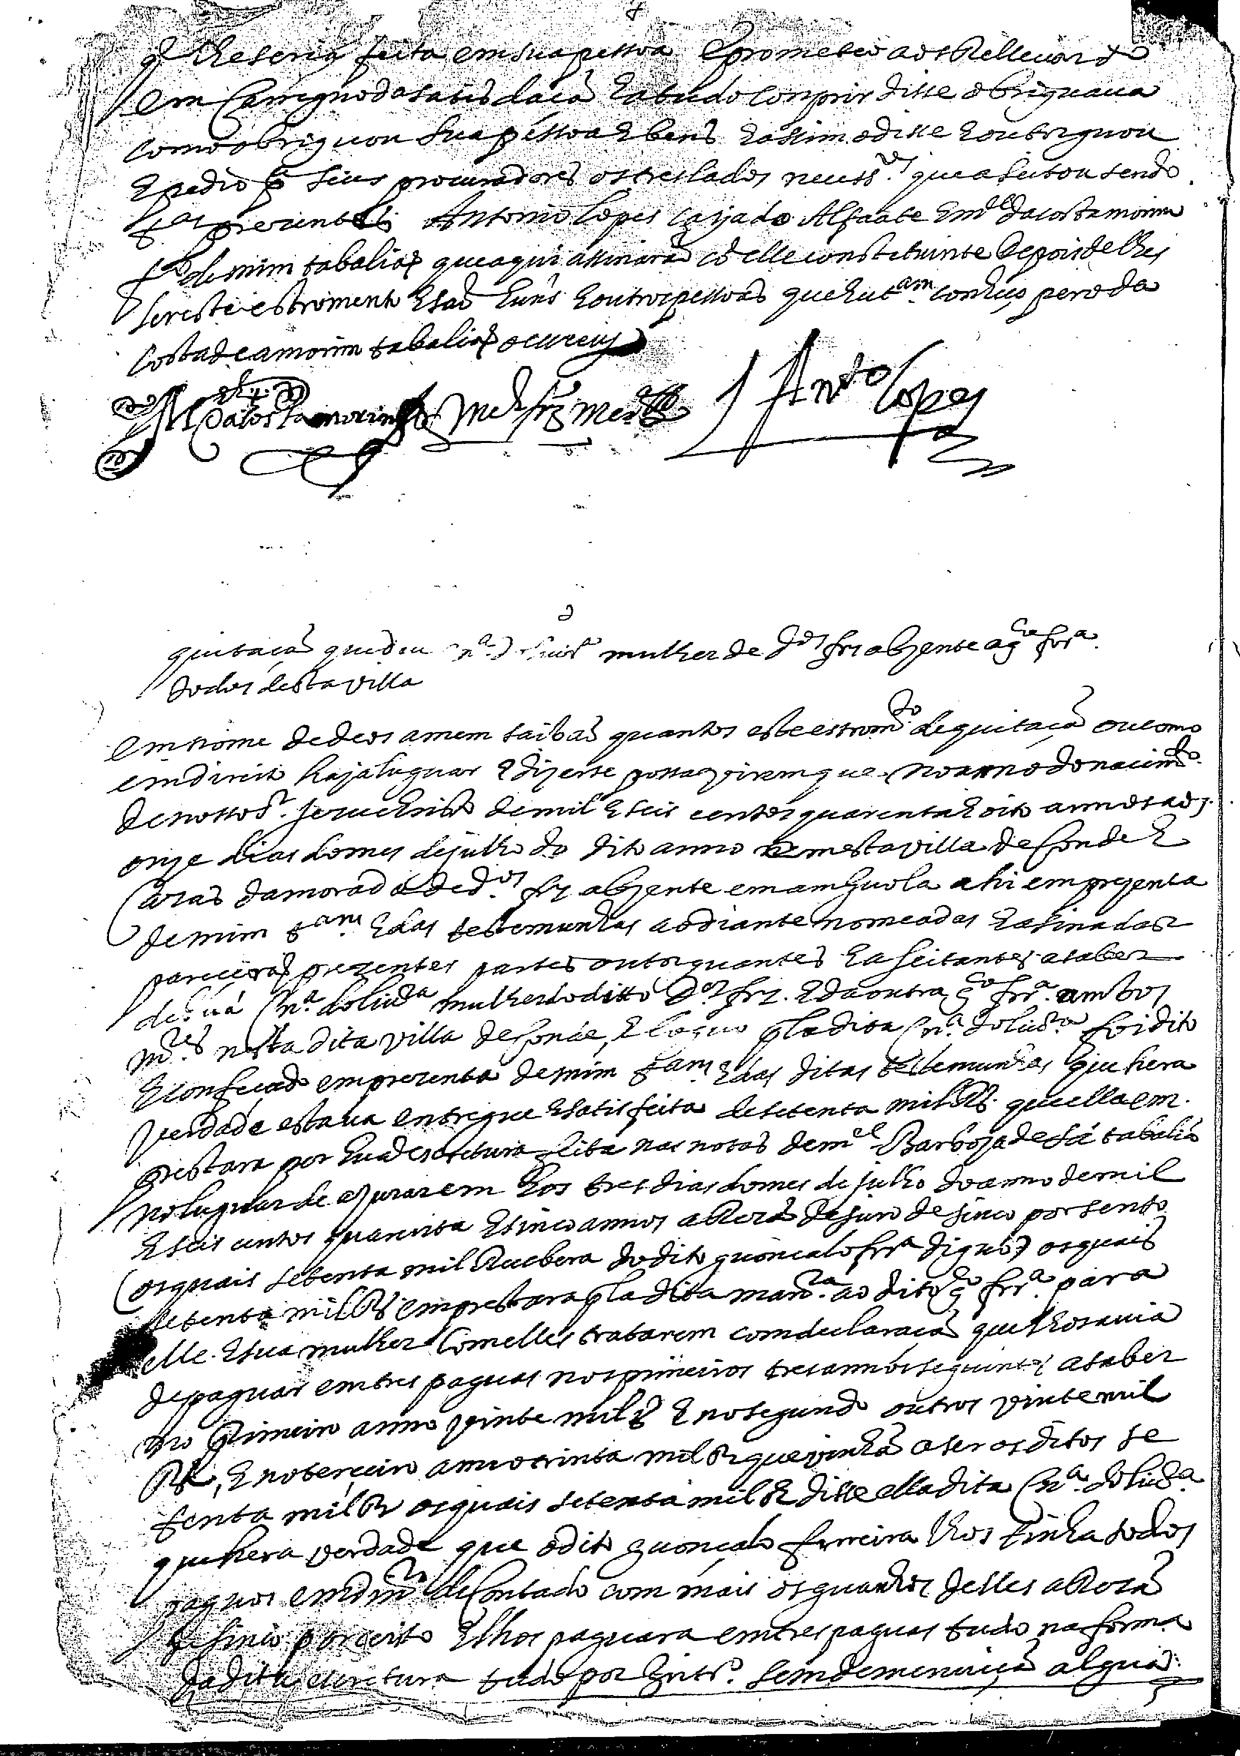 q lhe seria feita em sua pessoa e prometeo aos Rellevar do
em Carreguo da satisdacã e a tudo conprir disse obriguava
como obriguou sua pessoa e bens e assim o disse e outorguou
e pedio p seus procuradores os treslados necess.ros que aseitou sendo
t.as prezentes Antonio lopes Alfaate e m.el da costa morim
f.o de mim tabaliaõ que aqui assinaraõ cõ elle constetuinte depois de lhes
ser este estromento e saõ huns e outros pessoas que eu t.am conheço pero da
costa de amorim tabaliaõ o escrevy
M dacosta morim Mel frz Ant.o lopes
quitacã que deu mulher de d.os frz abzente a g.o frr.a
todos desta villa
em nome de deos amem saibã quantos este estrom.to de quitacã ou como
em direito haja luguar e dizerse possa virem que no anno do nacim.to
de nosso s.r jesu christo de mil e seis centos quarenta e oito annos aos
onze dias do mes de julho do dito anno nesta villa de Conde e
Cazas da morada de d.os frz abzente em amguola ahi em prezenca
de mim t.am e das testemunhas ao diante nomeadas e asinadas
pareceraõ prezentes partes outorguantes e aseitantes a saber
de huã mulher do ditto d.os frz. e da outra g.o frr.a ambos
m.res nesta dita villa de Conde, e loguo pla dita foi dito
e confecado em prezenca de mim t.am e das ditas testemunhas que hera
verdade estava entregue e satisfeita de setenta mil Rs. que ella em
prestara por huã escritura feita nas notas de m.el Barboza de sá tabaliã
no luguar de azurarem aos tres dias do mes de julho do anno de mil
e seis centos quarenta e sinco annos a Rezã de juro de sinco por sento
os quais setenta mil Rs do dito guoncalo frr.a diguo os quais
setenta mil Rs emprestara pla dita man.ra ao dito g.o frr.a para
elle e sua mulher com elles tratarem com declaracã que lhos avia
de paguar em tres paguas nos primeiros tres annos seguintes a saber
no primeiro anno vinte mil rs e no segundo outros vinte mil
Rs, e no terceiro anno trinta mil Rs que vinhã a ser os ditos se
tenta mil Rs os quais setenta mil Rs disse ella dita
que hera verdade que o dito guoncalo ferreira lhos tinha todos
paguos em dinr.o de Contado com mais os guanhos delles a Rezã
de sinco por cento e lhos paguara em tres paguas tudo na forma
da dita escritura tudo por sem demenuicã algua